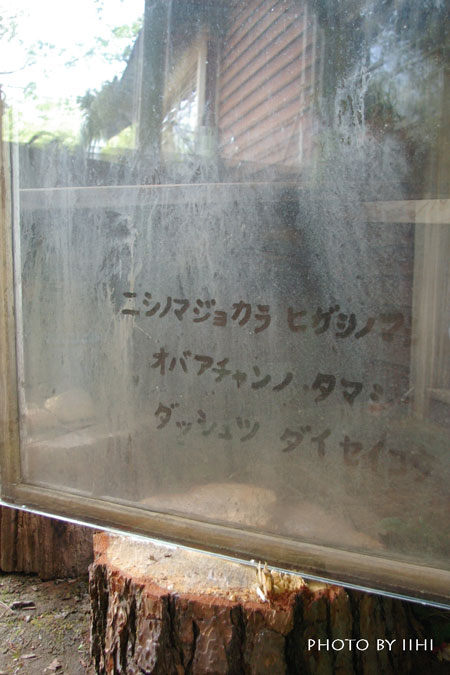 ニシノマジョカラ ヒガシノマ
オバアチャンノ タマシ
ダッシュツ ダイセイコウ
PHOTO BY IIHI